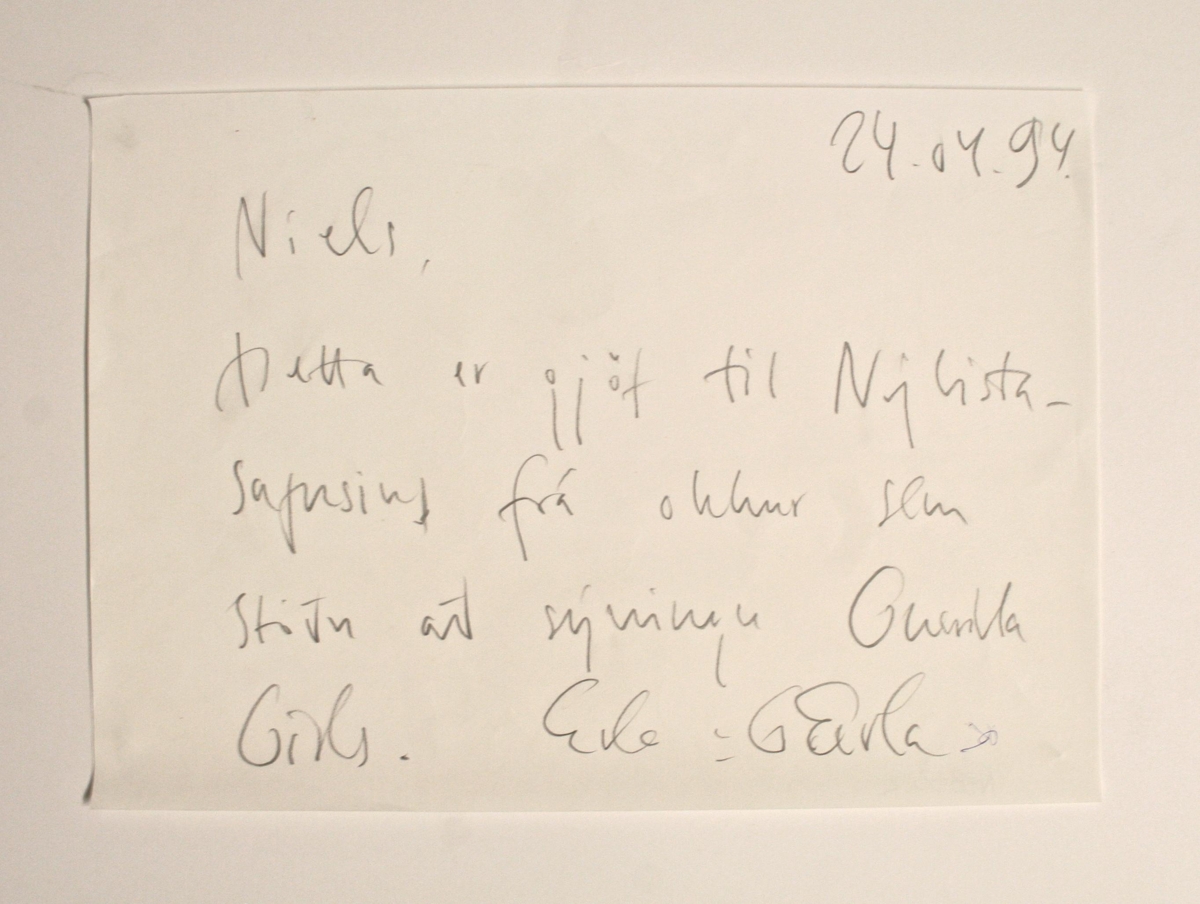 24.04.94.
Niels,
Þetta er gjöf til Nýlista-
safnsins frá okkur sem
stóðu að sýningu Guerrilla
Girls.